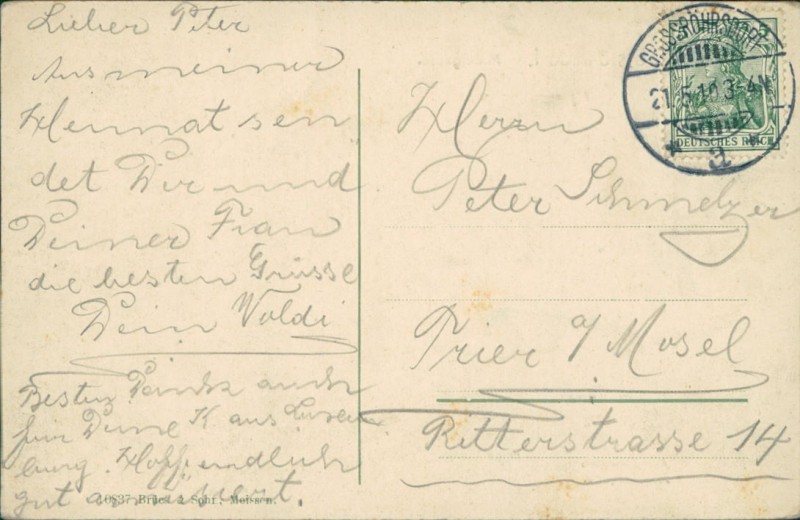 Lieber Peter
Aus meiner
Heimat sen
det Dir und
Deiner Frau
die besten Grüsse
Dein Voldi
Besten Dank auch
für Deine K aus Luxem
burg. Hoff. endlich
gut
10837 Brück & Sohn, Meissen.
GROSSRÖHRSDORF
21.5.10.3-4N
a
DEUTSCHES REICH
Herrn
Peter Schmelzer
Trier a/ Mosel
Ritterstrasse 14